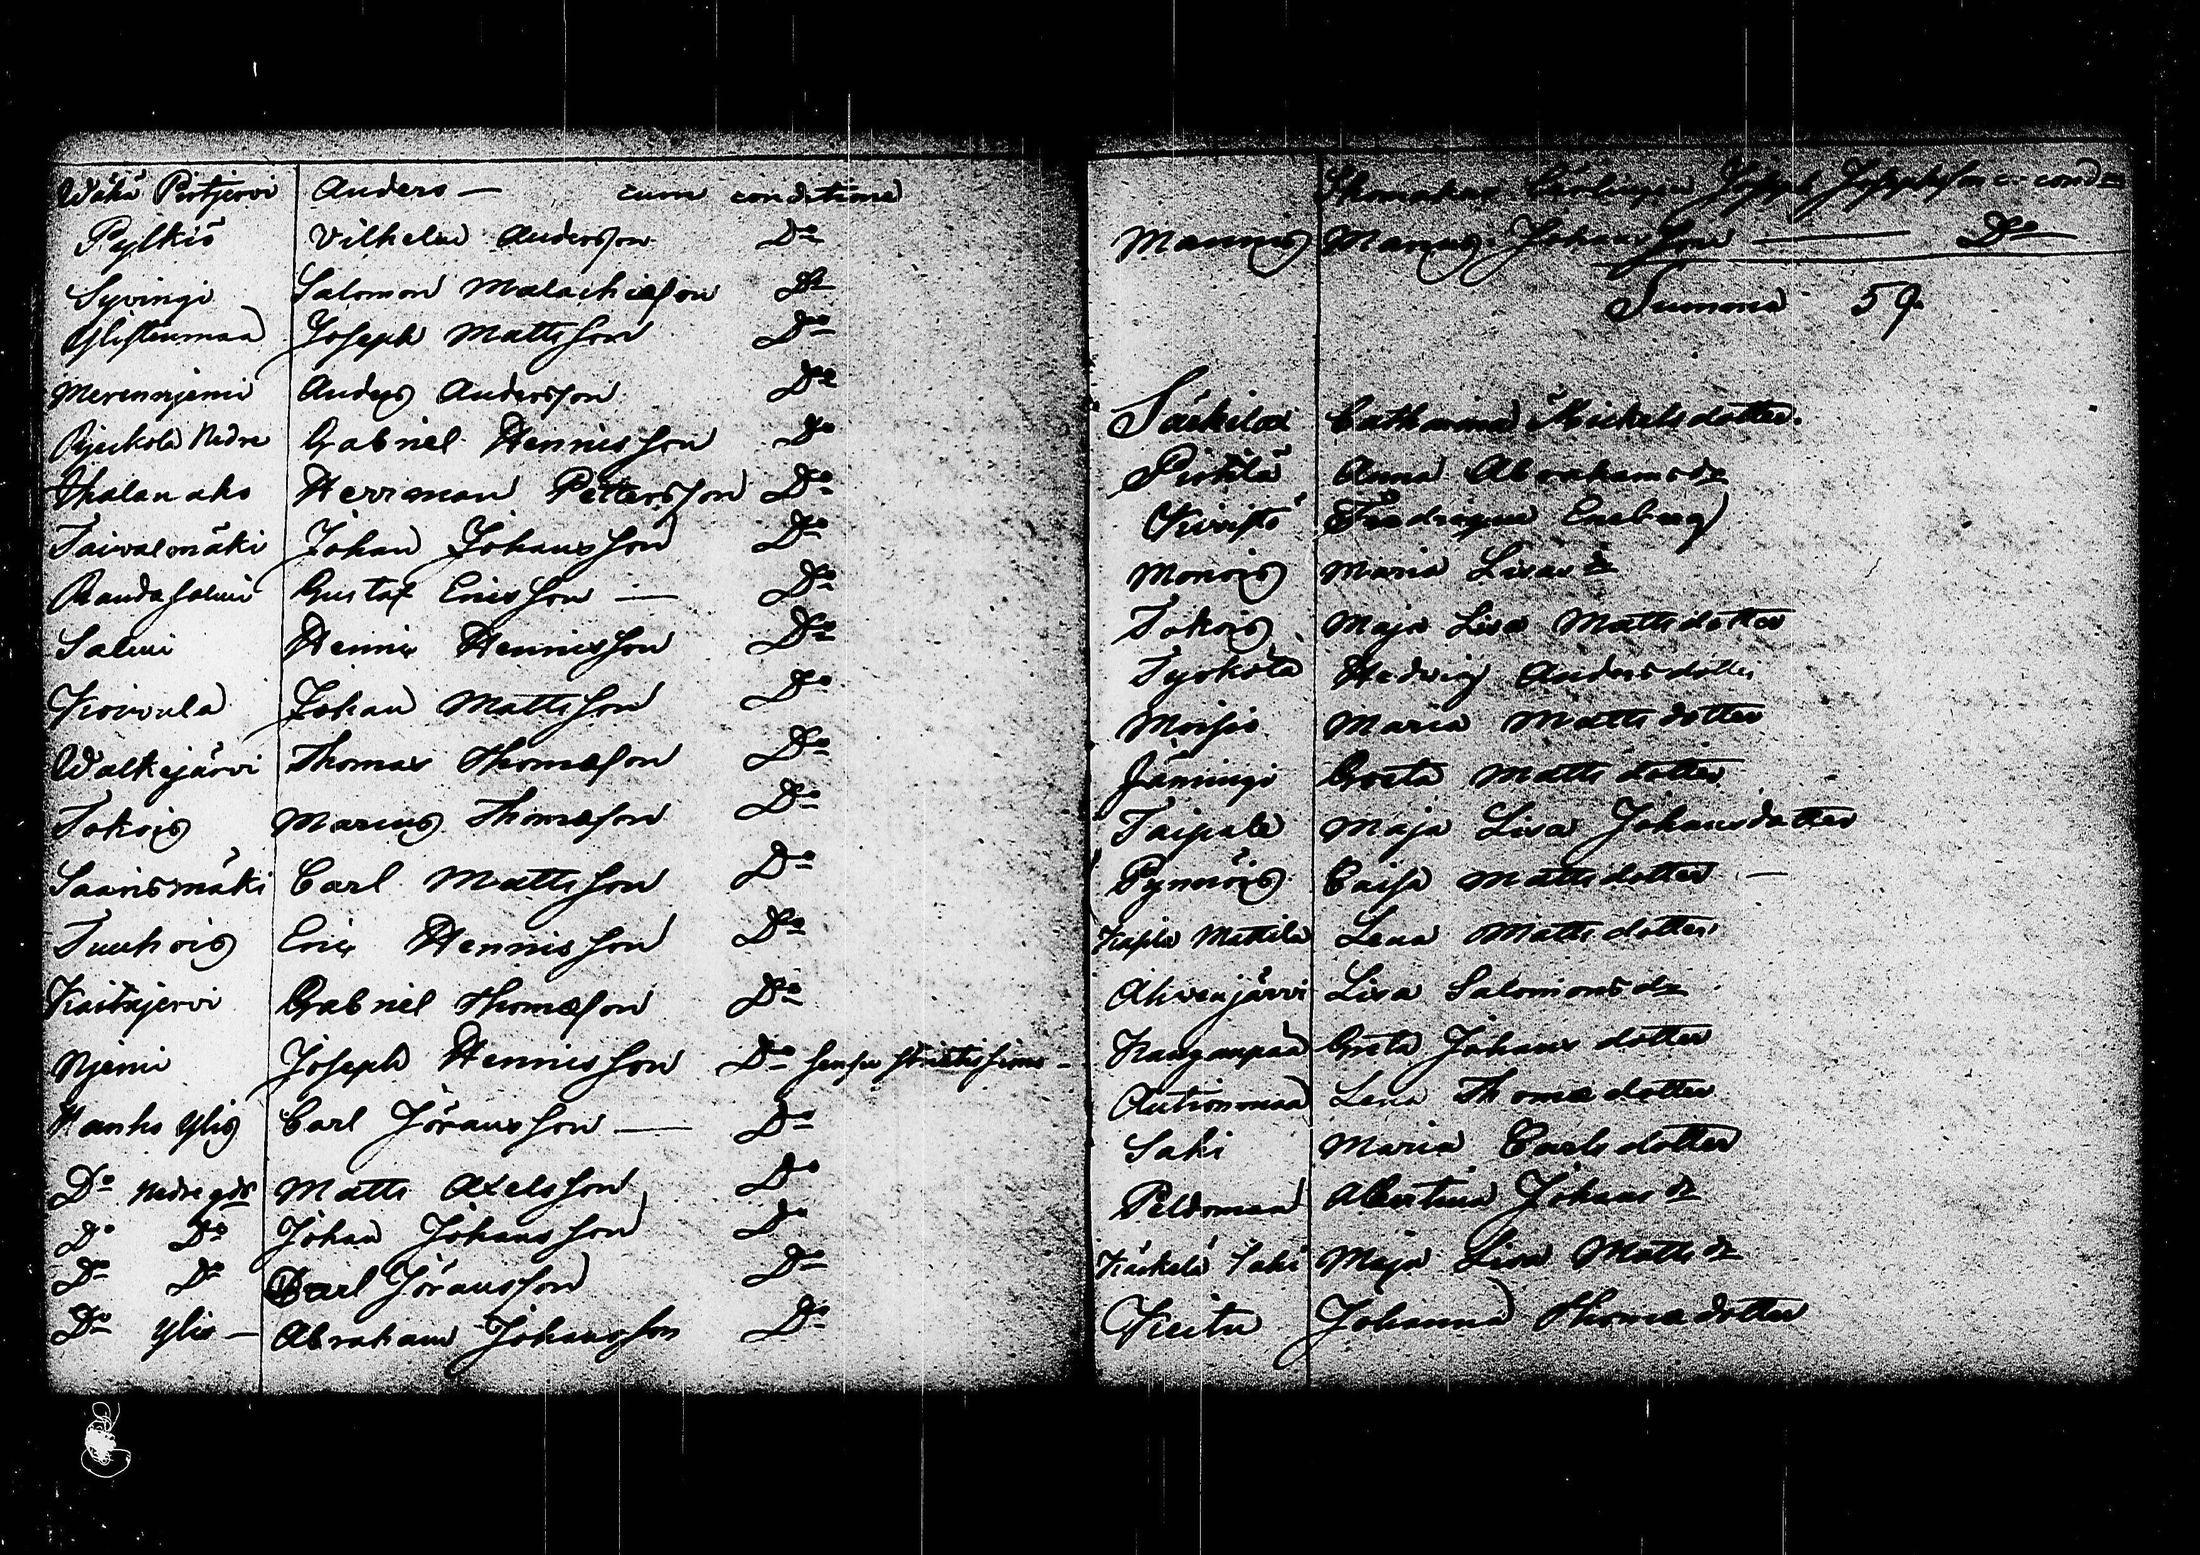 Wähä Pietjervi Anders — cum conditione
Pylkiö Vilhelm Andersson Do
Syvingi Salomon Malachiasson Do
Ylistenmaa Joseph Mattsson Do
Merennjemi Anders Andersson Do
Nedre Gabriel Hennisson Do
Herrman Pettersson Do
Taivalmäki Johan Johansson Do
Randasalmi Gustaf Ericsson — Do
Salmi Henric Hennisson Do
Koivula Johan Mattsson Do
Walkejärvi Thomas Thomasson Do
Tokois Marcus Thomasson Do
Saarismäki Carl Mattsson Do
Tuuhois Eric Hennisson Do
Kaitajervi Gabriel Thomasson Do
Njemi Joseph Hennisson Do sensu strictissimo —
Hanho Ylis Carl Jöransson — Do
Do Nedregds Matts Axelsson Do
Do Do Johan Johansson Do
Do Do Carl Jöransson Do
Do Ylis — Abraham Johansson Do
Joseph Josephsson c: cond:
Mannis Marcus Johansson — Do
Summa 59
Säkilä Catharina Mickelsdotter.
Pietilä Anna Abrahamsdr
Kivistö Fredrique Eneberg
Monois Maria Lisasdr
Tokois Maja Lisa Mattsdotter
Työkölä Hedvig Andersdotter
Moisio Maria Mattsdotter
Jämingi Greta Mattsdotter
Taipale Maja Lisa Johansdotter
Pynnöis Caisa Mattsdotter —
Kapla Mattila Lena Mattsdotter
Ahvenjärvi Lisa Salomonsdr
Kanganpää Greta Johansdotter
Autionmaa Lena Thomasdotter
Saki Maria Carlsdotter
Peldomaa Albertina Johansdr
Käkelä Saki Maja Lisa Mattsdr
Keitu Johanna Thomasdotter